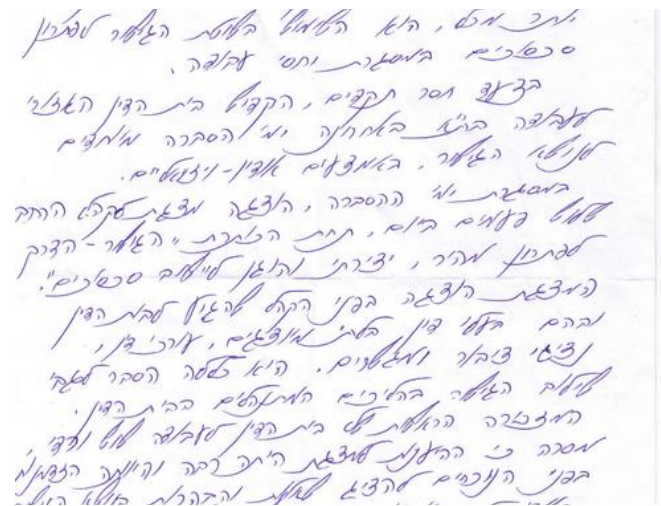 יותר מכל, היא השימוש בשיטת הגישור לפתרון
סכסוכים במסגרת יחסי עבודה.
בצעד חסר תקדים, הקדיש בית הדין האזורי
לעבודה בת"א באחרונה ימי הסברה מיוחדים
לנושא הגישור, באמצעים אודיו-ויזואליים.
במסגרת ימי ההסברה, הוצגה מצגת לקהל הרחב
שלוש פעמים ביום, תחת הכותרת "הגישור-הדרך
לפתרון מהיר, יצירתי והוגן ליישוב סכסוכים".
המצגת הוצגה בפני הקהל שהגיע לבית הדין
ובהם בעלי דין בלתי מיוצגים, עורכי דין,
נציגי ציבור ומגשרים. היא כללה הסבר לגבי
שילוב הגישור בהליכים המתנהלים בבית הדין.
המזכירה הראשית של בית הדין לעבודה
מסרה כי ההיענות למצגת היתה רבה והיוותה הזדמנות
בפני הנוכחים להציג שאלות והבהרות בנושא